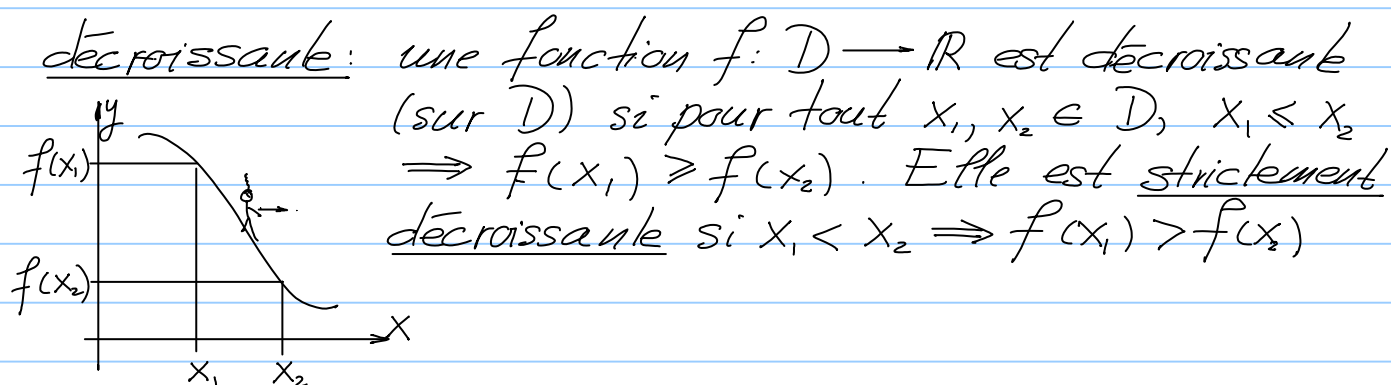 décroissante: une fonction f: D → ℝ est décroissante
(sur D) si pour tout x₁, x₂ ∈ D, x₁ ≤ x₂
⟹ f(x₁) ≥ f(x₂). Elle est strictement
décroissante si x₁ < x₂ ⟹ f(x₁) > f(x₂)
y
f(x₁)
f(x₂)
x
x₁ x₂